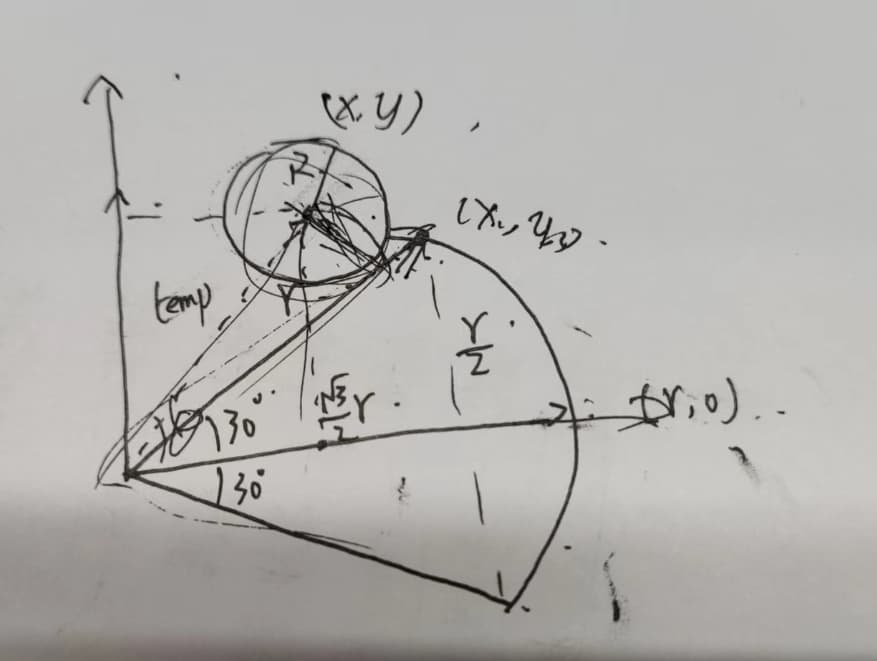 (x, y)
R
(x₁, y₁)
temp
r
r/2
√3/2 r
(r, 0)
30°
30°